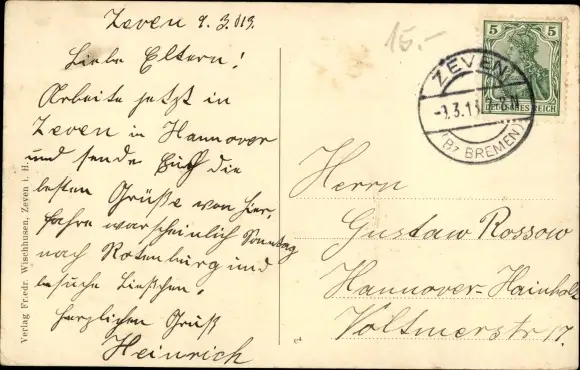 Zeven 9.3.013.
Liebe Eltern!
Arbeite jetzt in
Zeven in Hannover
und sende Euch die
besten Grüße von hier,
fahre warscheinlich Sonntag
nach Rotenburg und
besuche Lieschen.
Herzlichen Gruß
Heinrich
Verlag Friedr. Wischhusen, Zeven i. H.
15.-
5 5
DEUTSCHES REICH
ZEVEN
(Bz BREMEN)
Herrn
Gustav Rossow
Hannover-Hainholz
Voltmerstr 17.